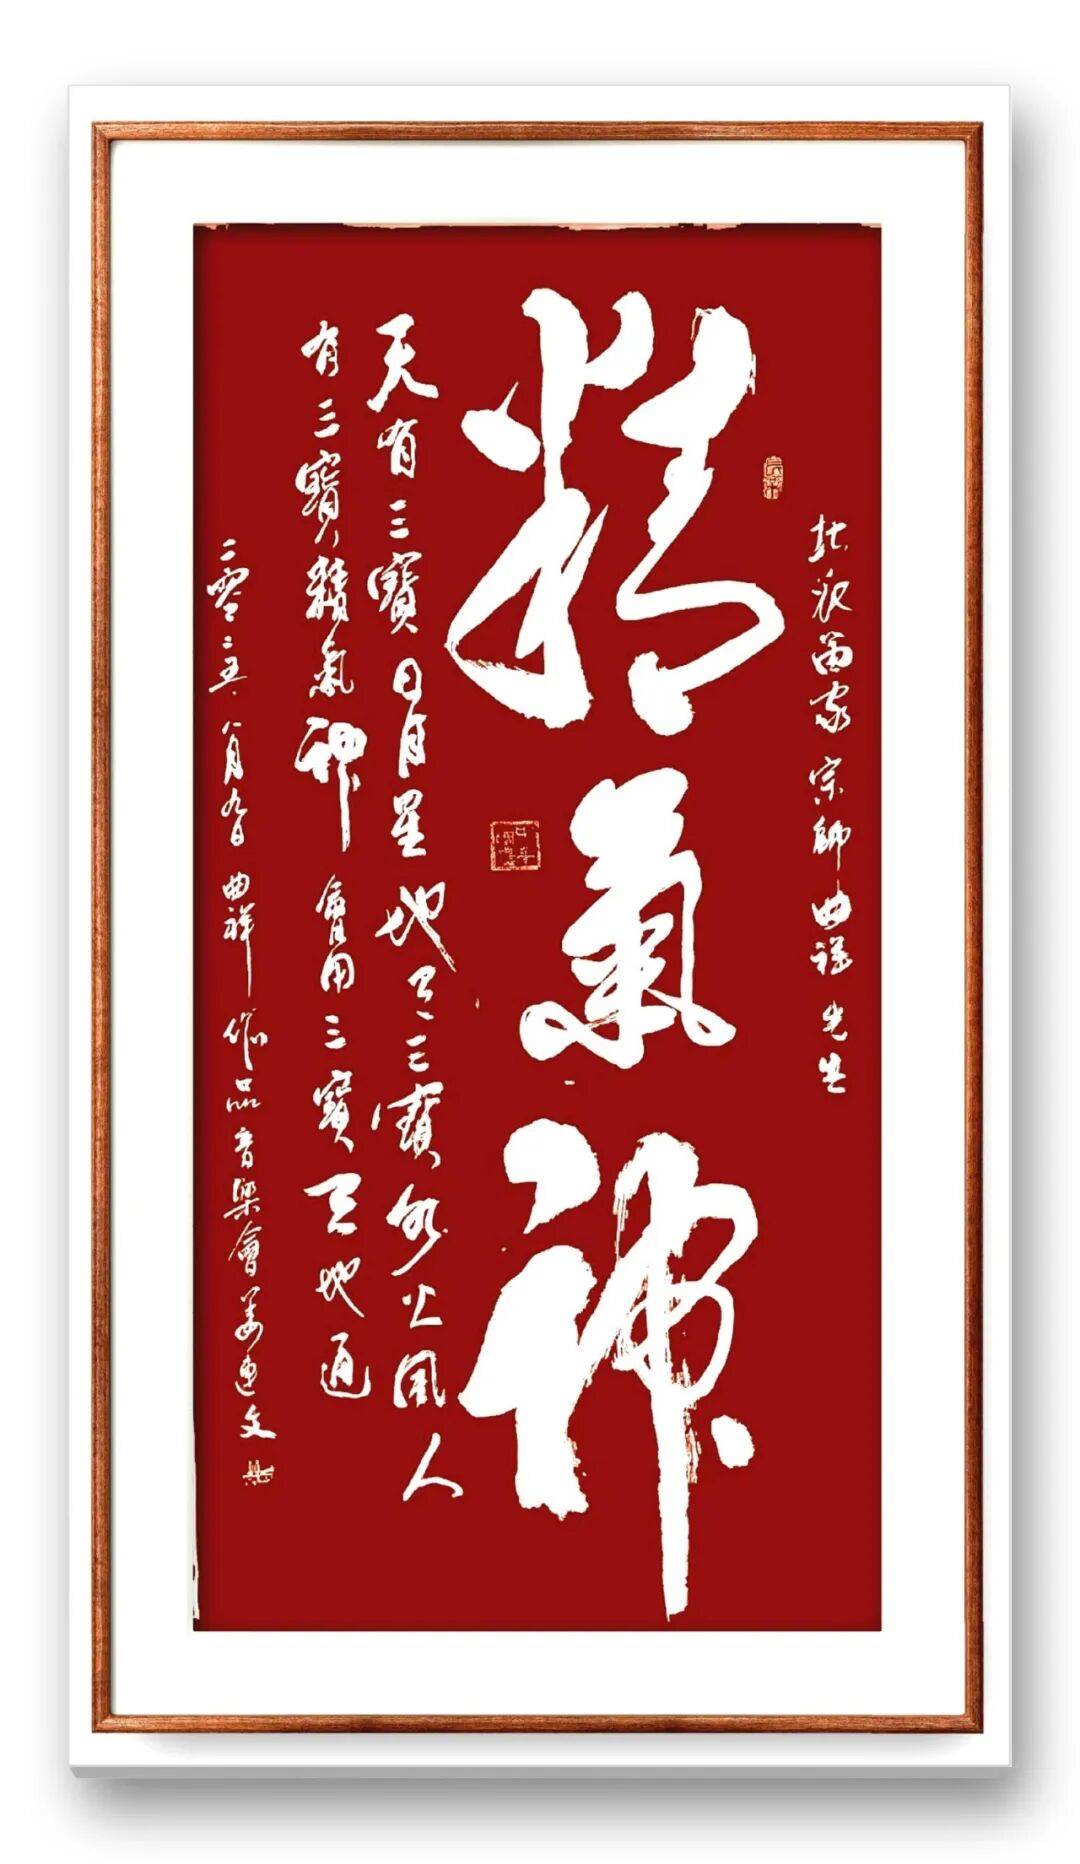 北派笛家宗師曲祥先生
精氣神
天有三寶日月星地有三寶水火風人
有三寶精氣神會用三寶天地通
二零二五八月九日曲祥作品音樂會姜連文